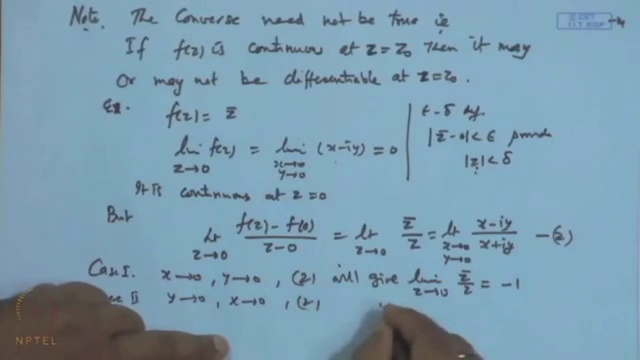 Note. The Converse need not be true ie
If f(z) is continuous at z=z₀ then it may
or may not be differentiable at z=z₀.
Ex. f(z) = z̄
lim z→0 f(z) = lim x→0 y→0 (x-iy) = 0
ε-δ def.
|z̄-0|<ε
|z|<δ
It is continuous at z=0
But lt z→0 f(z)-f(0)/z-0 = lt z→0 z̄/z = lt x→0 y→0 x-iy/x+iy —(2)
Case I. x→0, y→0, (2) will give lim z→0 z̄/z = -1
II y→0, x→0, (2)
NPTEL